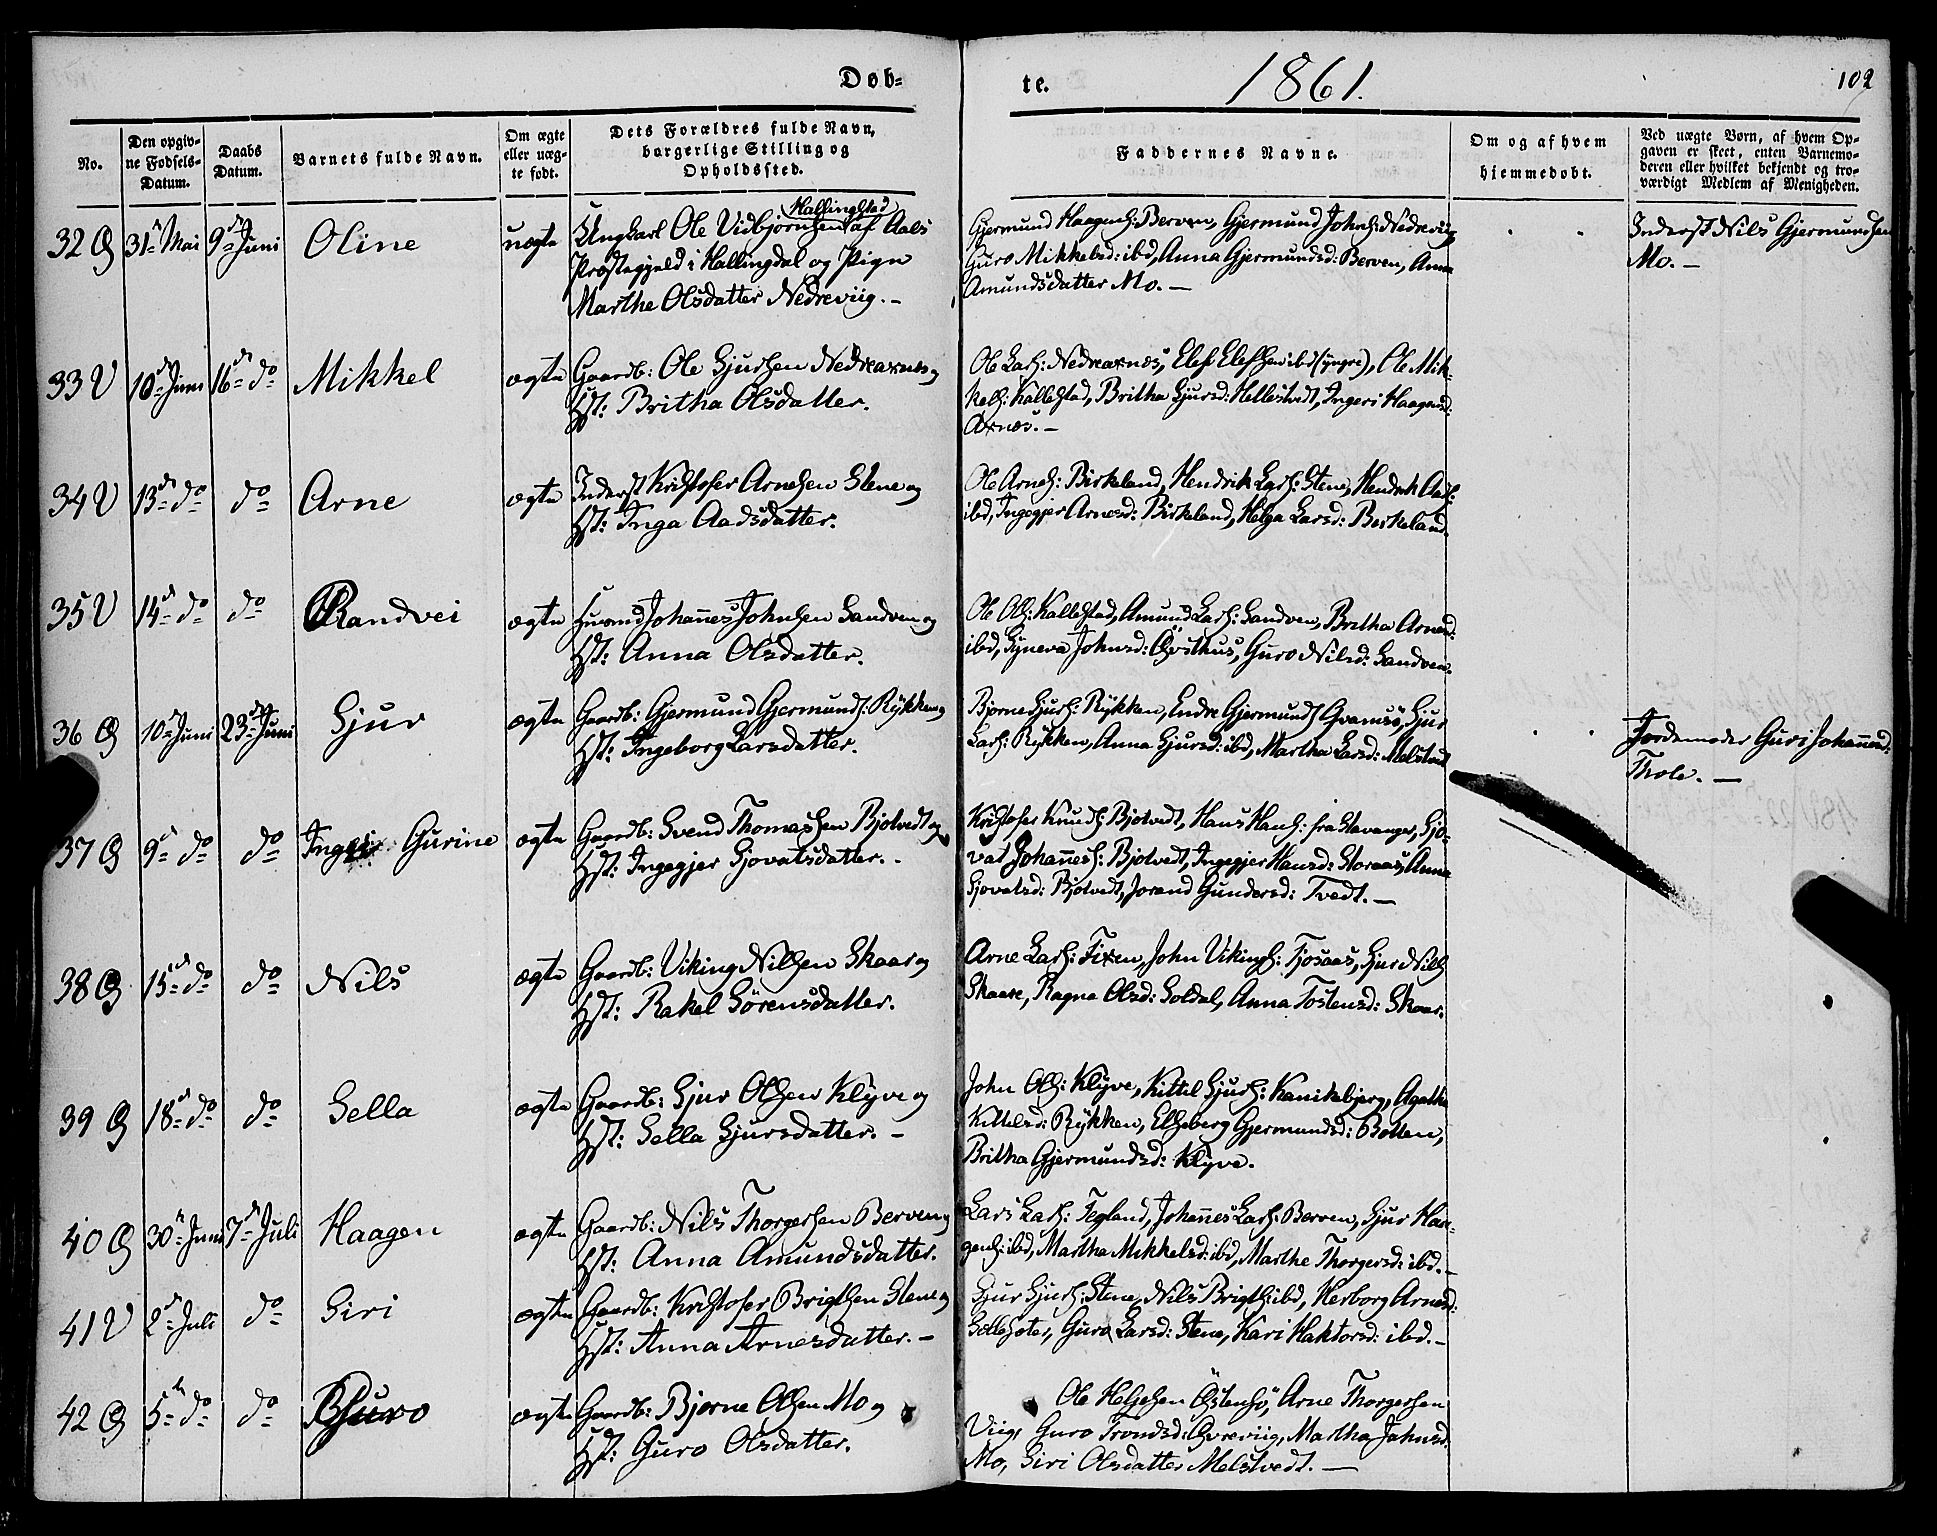 Døb-
te.
1861.
102
No.
Den opgiv-
ne Fødsels-
Datum.
Daabs
Datum.
Barnets fulde Navn.
Om ægte
eller uæg-
te født.
Dets Forældres fulde Navn,
borgerlige Stilling og
Opholdssted.
Faddernes Navne.
Om og af hvem
hjemmedøbt.
Ved uægte Børn, af hvem Op-
gaven er skeet, enten Barnemo-
deren eller hvilket bekjendt og tro-
værdigt Medlem af Menigheden.
32 31te Mai 9de Juni Oline uægte
Hallingstad
Ungkarl Ole Vidbjørnsen af Aals
Præstegjeld i Hallingdal og Pige
Marthe Olsdatter Nedreviig. -
Gjermund Haagens: Berven, Gjermund Johns: Nedreviig,
Guro Mikkelsd: ibd, Anna Gjermundsd: Berven, Anna
Amundsdatter Mo. -
Inderst Nils Gjermundsen
Mo. -
33 V 10de Juni 16de do Mikkel ægte
Gaardb: Ole Sjursen Nedreaxnes og
Hst: Britha Olsdatter.
Ole Lars: Nedreaxnes, Elef Elefsen ibd (yngre), Ole Mik-
kels: Kallestad, Britha Sjursd: Hellestvedt, Ingeri Haagensd:
Axnes. -
34 V 13de do do Arne ægte
Inderst Kristofer Arnesen Stene og
Hst: Inga Aadsdatter.
Ole Arnes: Birkeland, Hendrik Lars: Stene, Hendrik Aads:
ibd, Ingegjer Arnesd: Birkeland, Helga Larsd: Birkeland.
35 V 14de do do Randvei ægte
Husmd Johannes Johnsen Sandven og
Hst: Anna Olsdatter.
Ole Ols: Kallestad, Amund Lars: Sandven, Britha Arnesd:
ibd, Syneva Johnsd: Øysthus, Guro Nilsd: Sandven.
36 10de Juni 23de Juni Sjur ægte
Gaardb: Gjermund Gjermunds: Rykken og
Hst: Ingeborg Larsdatter.
Bjørne Sjurs: Rykken, Endre Gjermunds Qvamsø, Sjur
Lars: Rykken, Anna Sjursd: ibd, Martha Larsd: Melstvedt
Jordemoder Guri Johannesd:
Thole. -
37 9de do do Gurine ægte
Gaardb: Svend Thomassen Bjotvedt og
Hst: Ingegjer Sjovatsdatter. -
Kristofer Knuds: Bjotvedt, Hans Hans: fra Stavanger, Sjo-
vat Johannes: Bjotvedt, Ingegjer Hansd: Storaas, Anna
Sjovatsd: Bjotvedt, Jorand Gundersd: Tvedt. -
38 15de do do Nils ægte
Gaardb: Viking Nilsen Skaar og
Hst: Rakel Sörensdatter.
Arne Lars: Fixen, John Vikings: Tjosaas, Sjur Nils
Skaare, Ragna Olsd: Soldal, Anna Tostensd: Skaar.
39 18de do do Sella ægte
Gaardb: Sjur Olsen Klyve og
Hst: Sella Sjursdatter. -
John Ols: Klyve, Kittil Sjurs: Kanikebjerg, Agatha
Kittelsd: Rykken, Elseberg Gjermundsd: Botten,
Britha Gjermundsd: Klyve.
40 30te Juni 7de Juli Haagen ægte
Gaardb: Nils Thorgersen Berven og
Hst: Anna Amundsdatter.
Lars Lars: Tegland, Johannes Lars: Berven, Sjur Haa-
gens: ibd, Martha Mikkelsd: ibd, Marthe Thorgersd: ibd. -
41 V 2de Juli do Siri ægte
Gaardb: Kristofer Brigtsen Stene og
Hst: Anna Arnesdatter. -
Sjur Sjurs: Stene, Nils Brigts: ibd, Herborg Arnesd:
Guro Larsd: Stene, Kari Haktorsd: ibd. -
42 5te do do Guro ægte
Gaardb: Bjørne Olsen Mo og
Hst: Guro Olsdatter.
Ole Helgesen Östensø, Arne Thorgersen
Viig, Guro Trondsd: Øvreviig, Martha Johnsd:
Mo, Siri Olsdatter Melstvedt. -